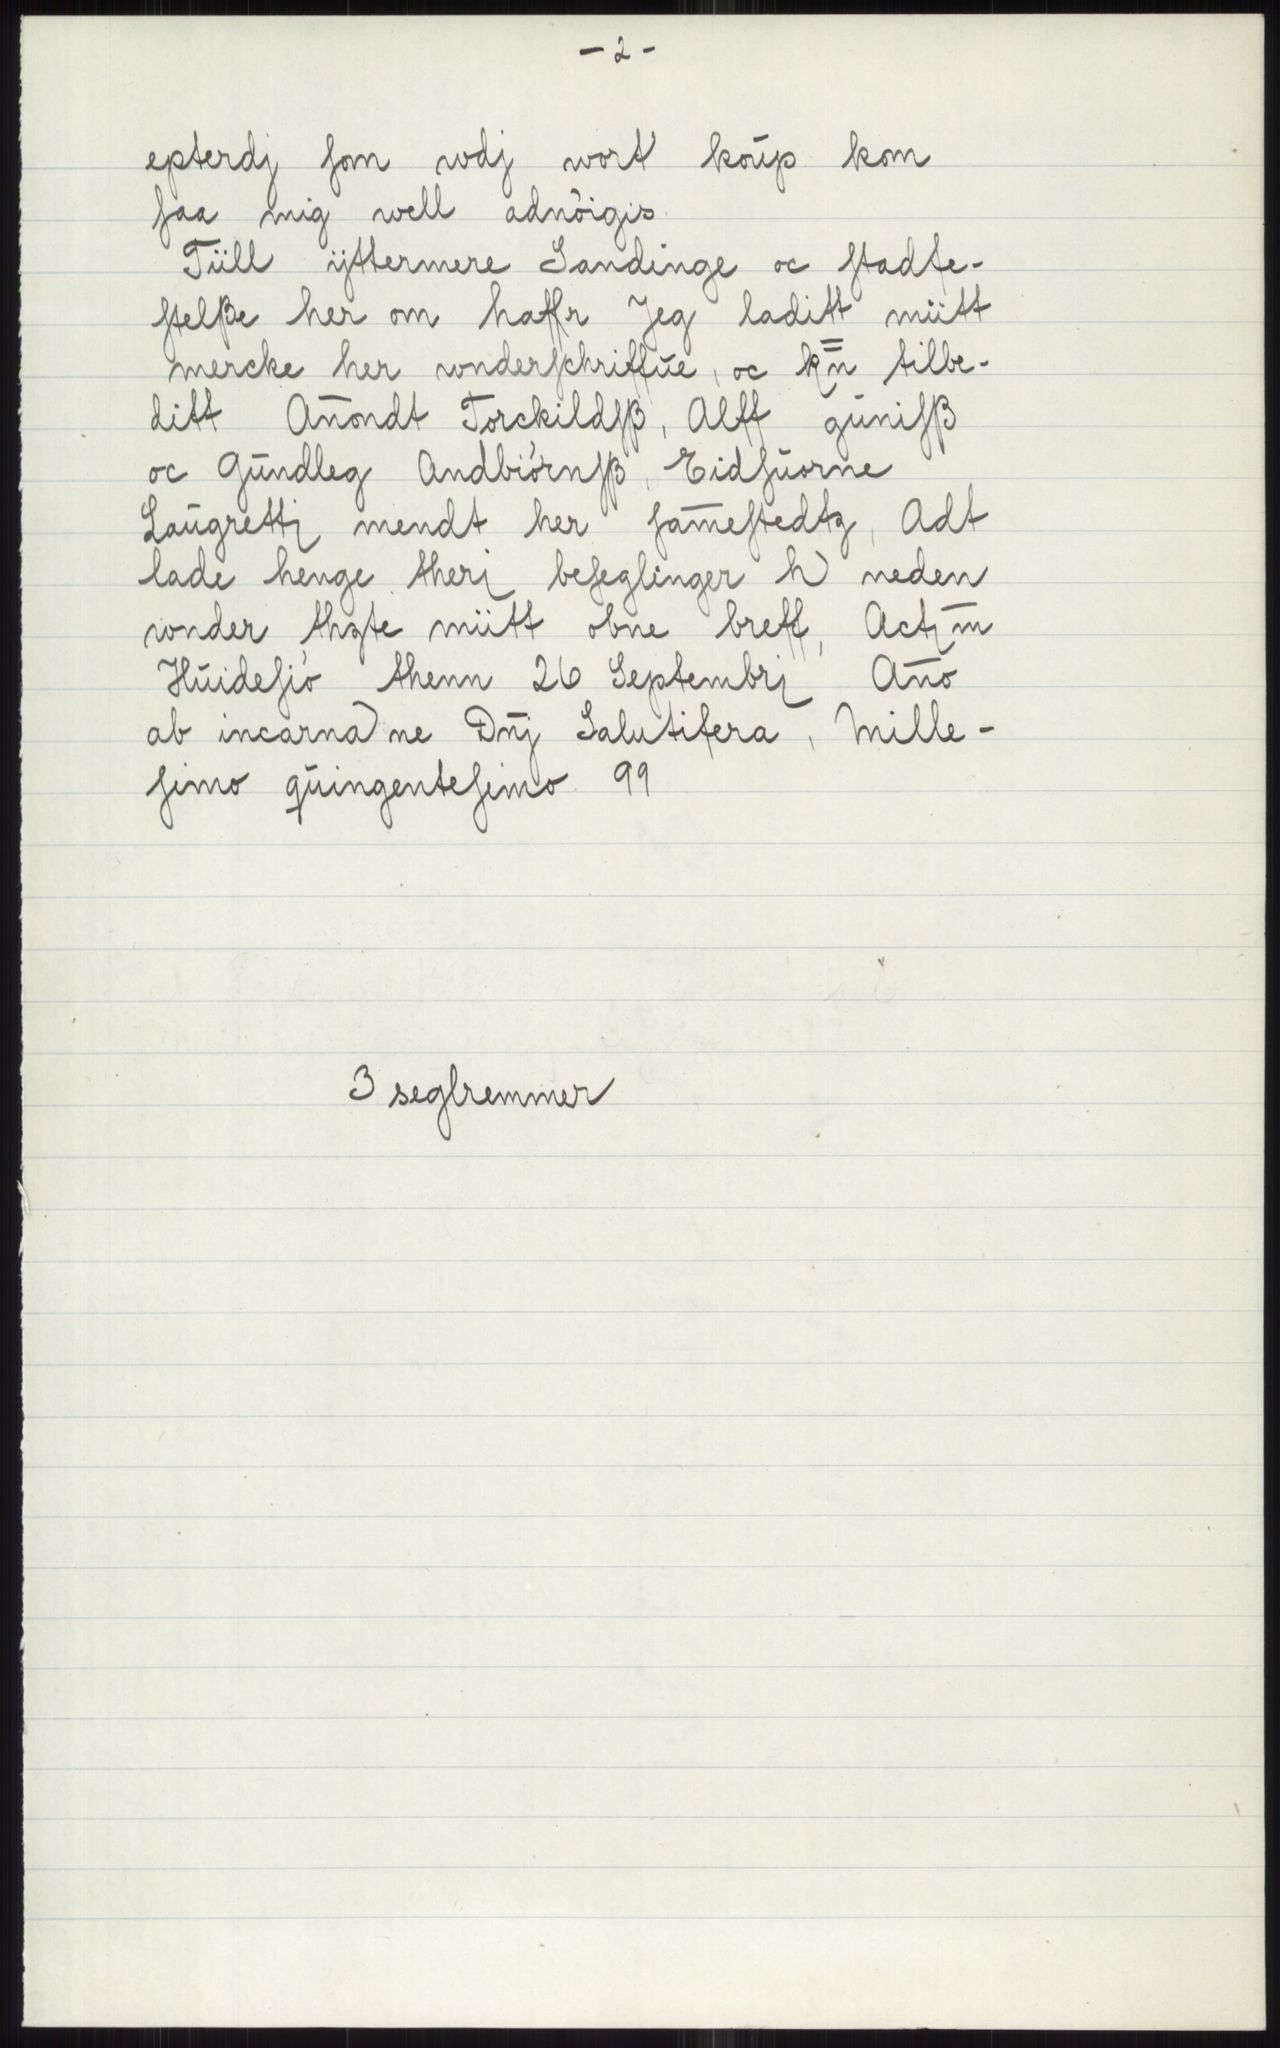 - 2 -
epterdj ſom wdj wort koŭp kom
ſaa mig well adnöigis
Tüll ÿttermere Sandinge oc ſtadfe-
ſtelße her om haffr Jeg laditt mütt
mercke her wnderſchriffŭe, oc k̿n̄ tilbe-
ditt An̄ondt Torckildſß, Alff gŭniſß
oc Gŭndleg Andbiörnſß, Eidſŭorne
Laŭgrettj mendt her ſam̄eſtedtz, Adt
lade henge therj beſeglinger h neden
wnder thzte mütt obne breff, Actj m̄
Hŭideſiö thenn 26 Septembrj An̄o
ab incarna ne Dn̄j Salutifera, Mille-
ſimo qŭingenteſimo 99
3 seglremmer